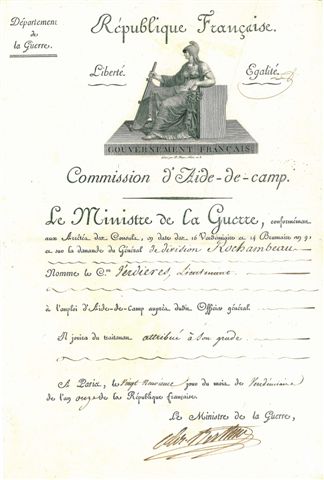 Département
de
la Guerre.
République Française.
Liberté.
Egalité.
GOUVERNEMENT FRANÇAIS.
Commission d'Aide-de-camp.
Le Ministre de la Guerre, conformément
aux Arrêtés des Consuls, en date des 16 Vendémiaire et 14 Brumaire an 9,
et sur la demande du Général de division Rochambeau
Nomme le C.en Verdières, Lieutenant
à l'emploi d'Aide-de-Camp auprès dudit Officier général.
Il jouira du traitement attribué à son grade
A Paris, le Vingt jour du mois de Vendémiaire
de l'an onze de la République française.
Le Ministre de la Guerre,